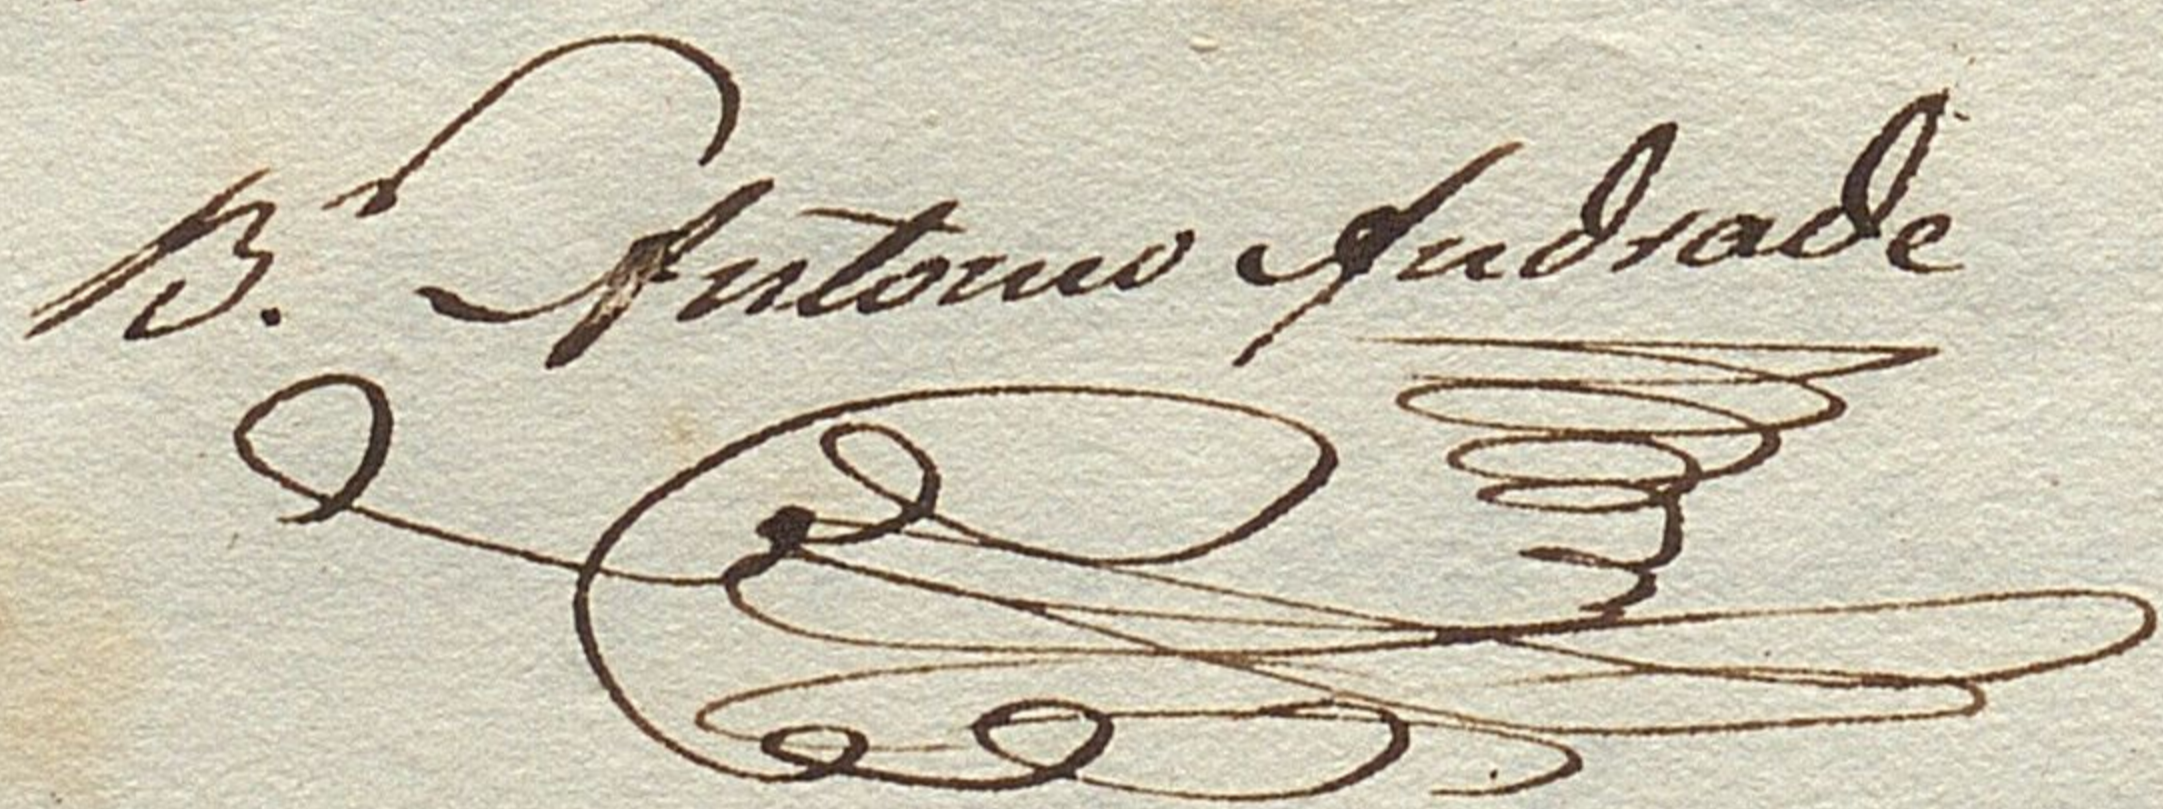 B.r Antonio Andrade